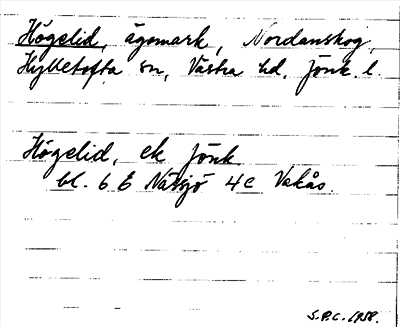 Högelid, ägomark, Nordanskog,
Hylletofta sn, Västra hd, Jönk. l.
Högelid, ek Jönk
bl. 6 E Nässjö 4c Vakås.
S.P.C. 1958.